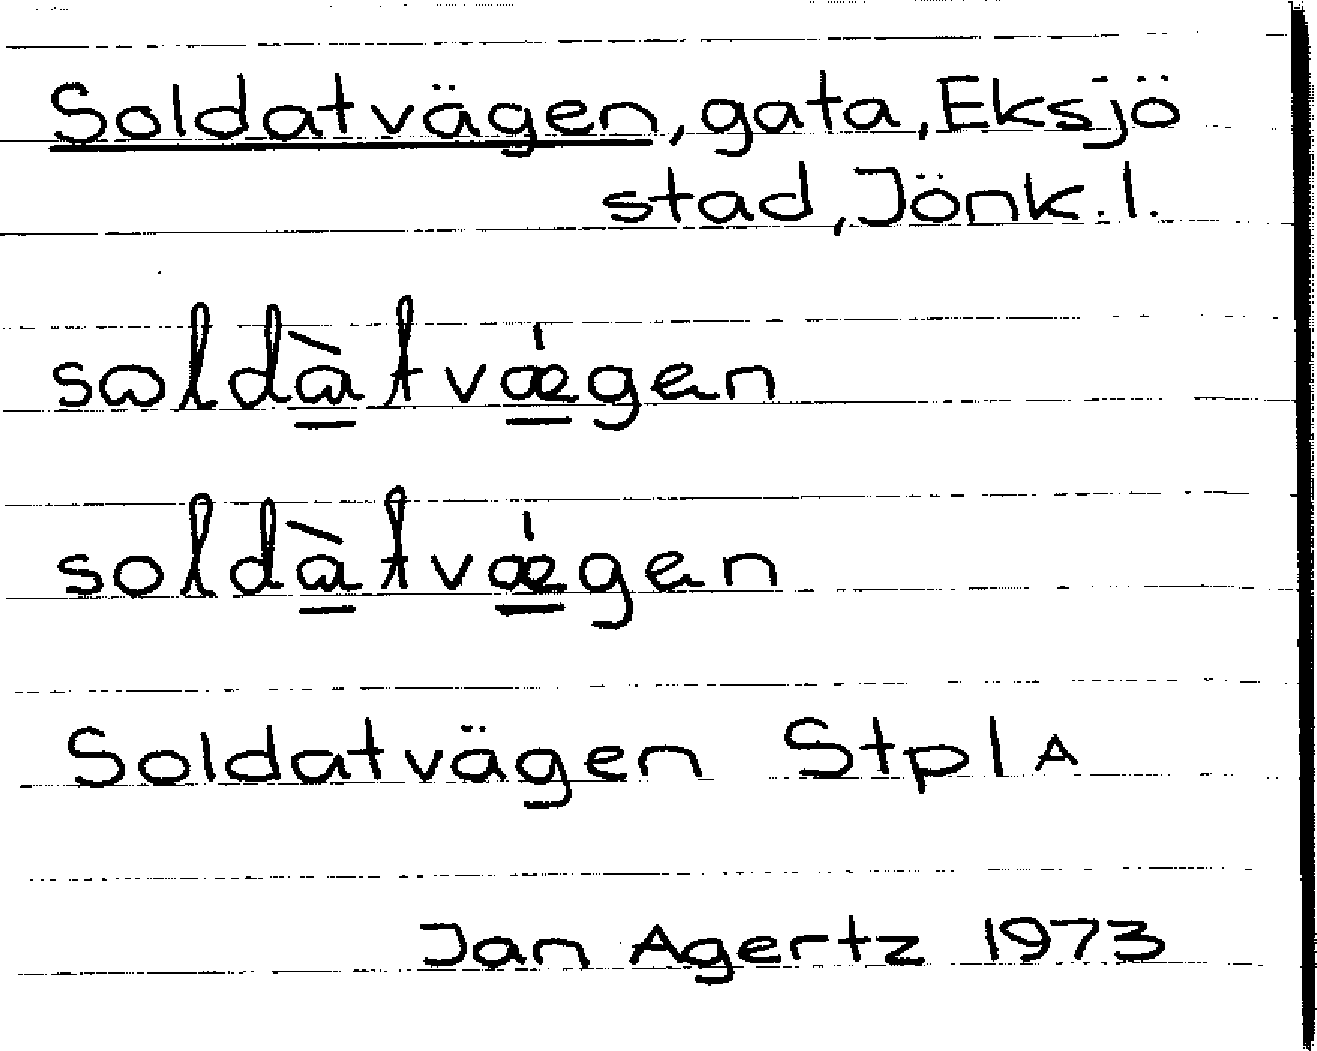 Soldatvägen, gata, Eksjö
stad, Jönk. l.
sωldὰtvǽgən
soldὰtvǽgən
Soldatvägen Stpl A
Jan Agertz 1973